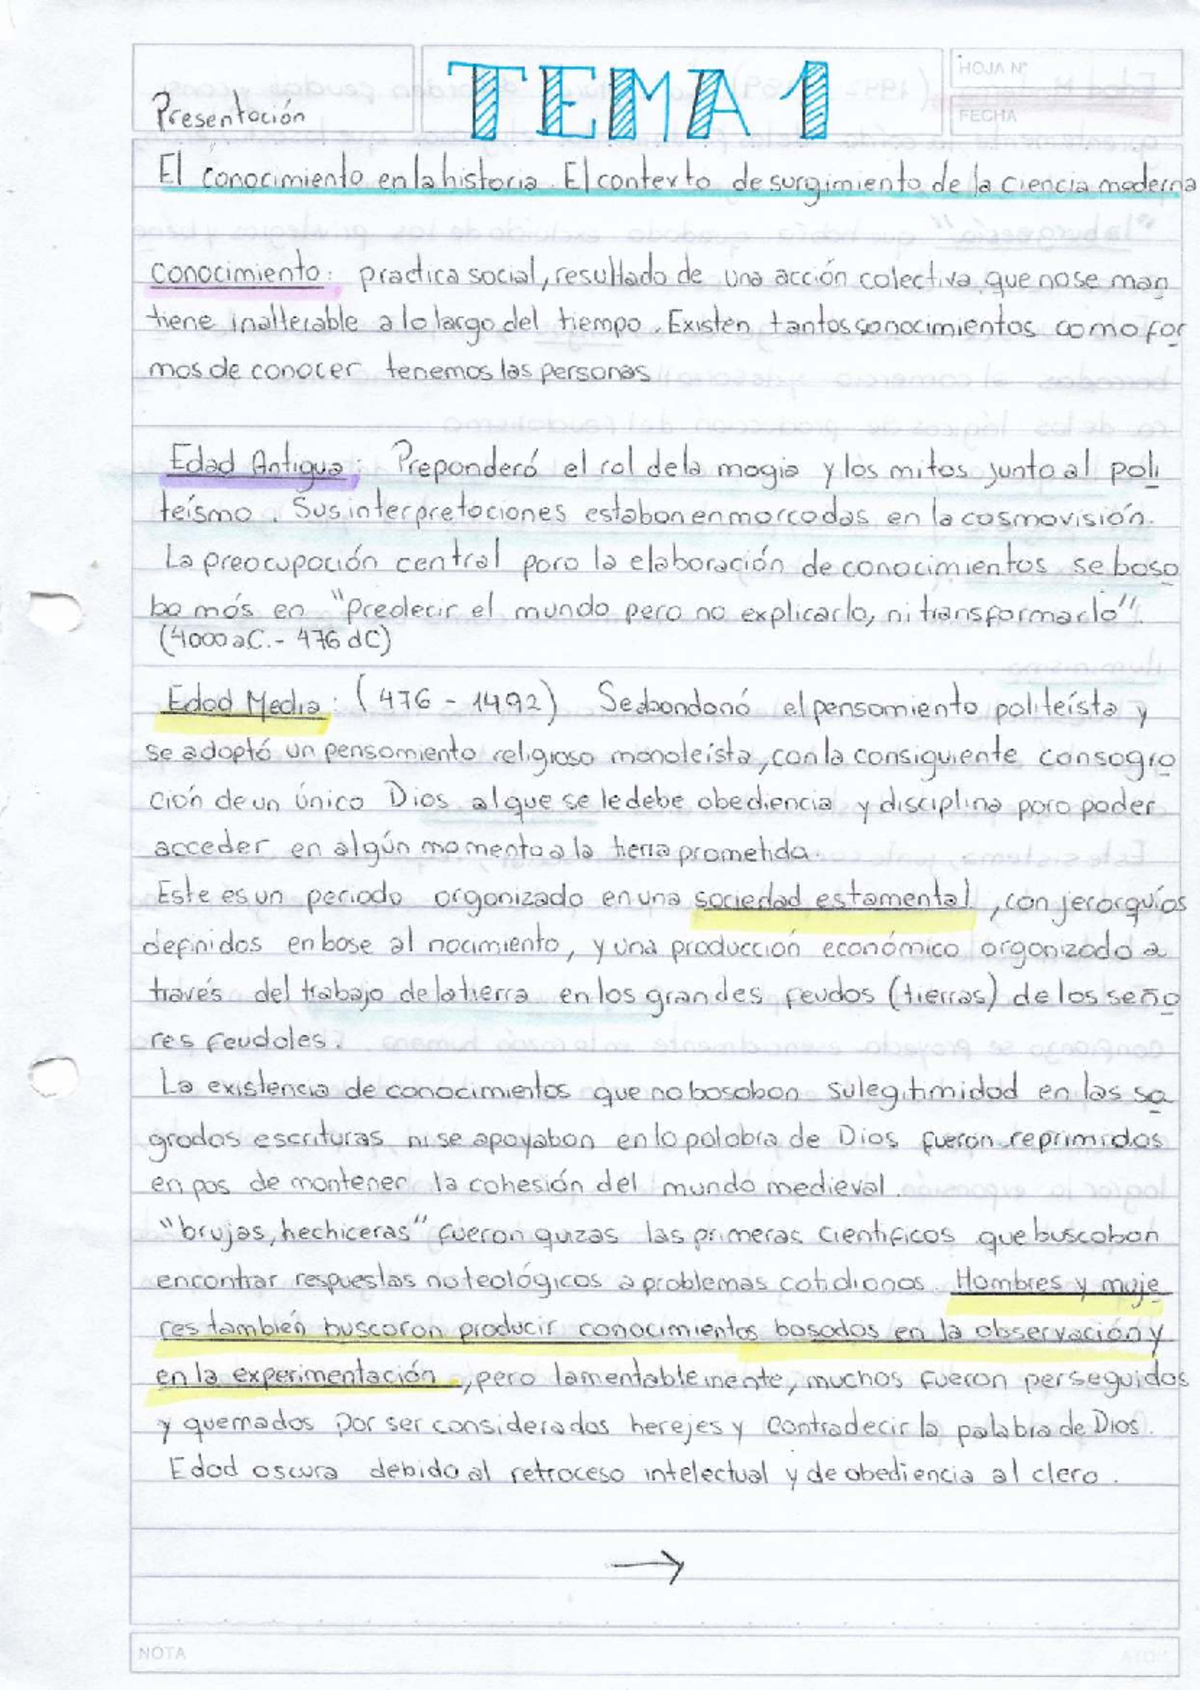 HOJA N°
TEMA 1
Presentación
FECHA
El conocimiento en la historia. El contexto de surgimiento de la ciencia moderna
Conocimiento: practica social, resultado de una acción colectiva que no se man
tiene inalterable a lo largo del tiempo. Existen tantos conocimientos como for
mas de conocer tenemos las personas
Edad Antigua: Preponderó el rol de la magia y los mitos junto al poli
teísmo. Sus interpretaciones estaban enmarcadas en la cosmovisión.
La preocupación central para la elaboración de conocimientos se basa
ba más en "predecir el mundo pero no explicarlo, ni transformarlo".
(4000 aC. - 476 dC)
Edad Media: (476 - 1492) Se abandonó el pensamiento politeísta y
se adoptó un pensamiento religioso monoteísta, con la consiguiente consagra
ción de un único Dios al que se le debe obediencia y disciplina para poder
acceder en algún momento a la tierra prometida.
Este es un periodo organizado en una sociedad estamental, con jerarquías
definidas en base al nacimiento, y una producción económica organizada a
través del trabajo de la tierra en los grandes feudos (tierras) de los seño
res feudales.
La existencia de conocimientos que no basaban su legitimidad en las sa
gradas escrituras ni se apoyaban en la palabra de Dios fueron reprimidas
en pos de mantener la cohesión del mundo medieval.
"brujas, hechiceras" fueron quizas las primeras científicas que buscaban
encontrar respuestas no teológicas a problemas cotidianos. Hombres y muje
res también buscaron producir conocimientos basados en la observación y
en la experimentación, pero lamentablemente, muchos fueron perseguidos
y quemados por ser considerados herejes y contradecir la palabra de Dios.
Edad oscura debido al retroceso intelectual y de obediencia al clero.
→
NOTA